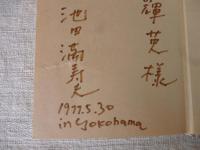 輝英様
池田満寿夫
1977.5.30
in Yokohama